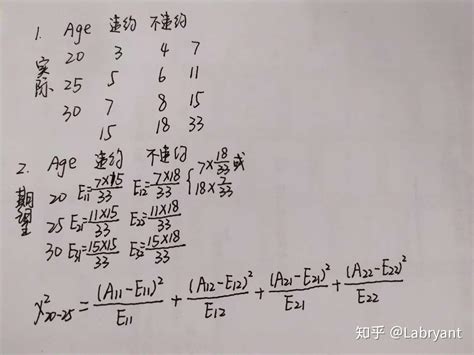 1. Age 违约 不违约
实际 20 3 4 7
25 5 6 11
30 7 8 15
15 18 33
2. Age 违约 不违约
期望 20 E11=7×15/33 E12=7×18/33 {7×18/33 或 18×7/33
25 E21=11×15/33 E22=11×18/33
30 E31=15×15/33 E32=15×18/33
χ²20-25 = (A11-E11)²/E11 + (A12-E12)²/E12 + (A21-E21)²/E21 + (A22-E22)²/E22
知乎 @Labryant